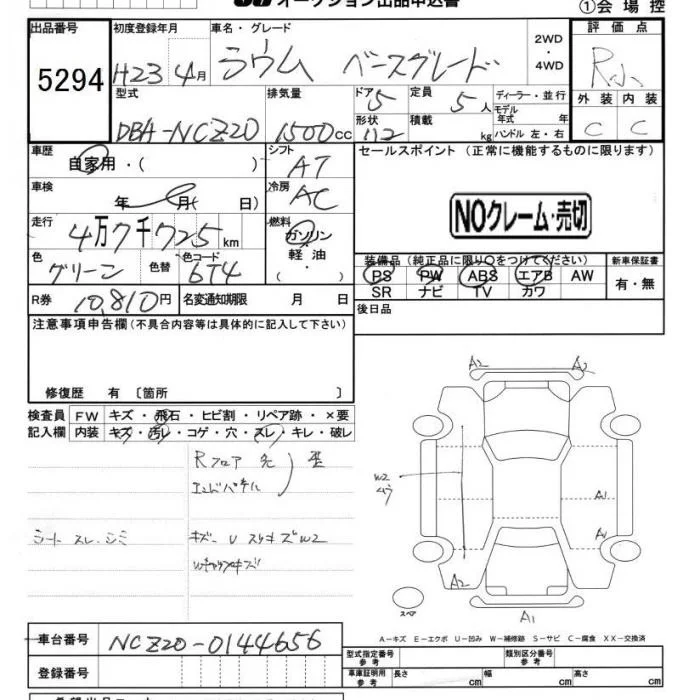 オークション出品申込書
①会場控
出品番号 初度登録年月 車名・グレード 評価点
5294 H23 4月 ラウム ベースグレード 2WD・4WD R小
型式 排気量 ドア 定員 ディーラー・並行 外装 内装
DBA-NCZ20 1500cc 5 5人 モデル年式 年 C C
形状 112 積載 kg ハンドル 左・右
車歴 シフト セールスポイント (正常に機能するものに限ります)
自家用・( ) AT
車検 冷房
年 月( 日) AC NOクレーム・売切
走行 燃料
4万7千725km ガソリン
軽油・( )
色 色替 色コード 装備品(純正品に限り○をつけてください) 新車保証書
グリーン 6T4 PS PW ABS エアB AW 有・無
SR ナビ TV カワ
R券 10,810円 名変通知期限 月 日 後日品
注意事項申告欄(不具合内容等は具体的に記入して下さい)
修復歴 有 〔箇所 〕
検査員 FW キズ・飛石・ヒビ割・リペア跡・×要
記入欄 内装 キズ・汚レ・コゲ・穴・スレ・キレ・破レ
Rフロア 先
エンドパネル
シート スレ、シミ
A2
W2
A1
A1
A2
A1
スペア
A－キズ E－エクボ U－凹み W－補修跡 S－サビ C－腐食 XX－交換済
車台番号 NCZ20-0144656
型式指定番号 参考 類別区分番号 参考
登録番号 車庫証明用 参考 長さ cm 幅 cm 高さ cm